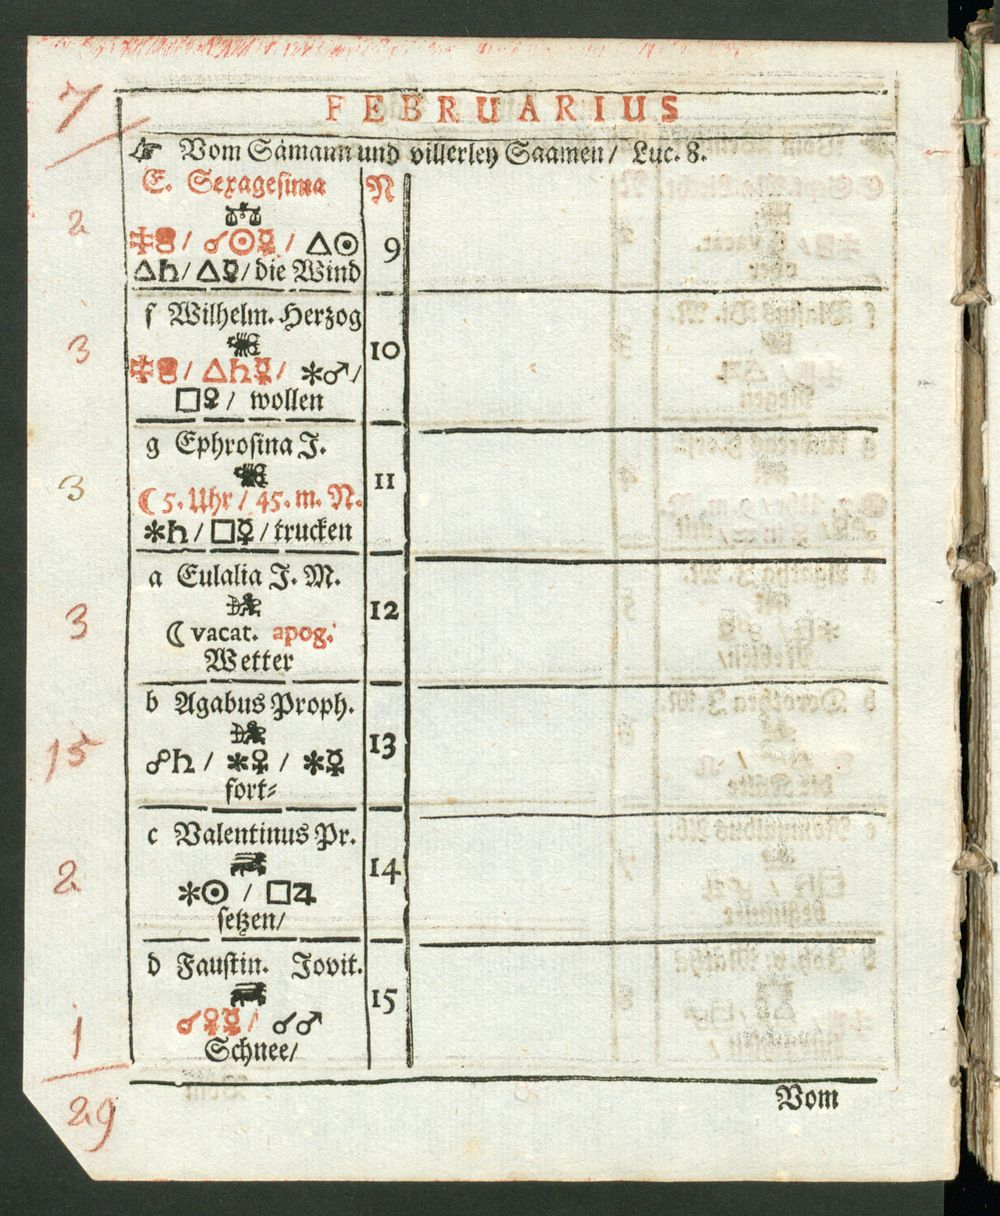 7
FEBRUARIUS
☞ Vom Sämann und villerley Saamen/ Luc. 8.
E. Sexagesima N
♎
/ ☌☉☿ / △☉ 9
△♄/ △☿/ die Wind
2
f Wilhelm. Herzog
♏
/ △♄☿/ ✱♂/ 10
□♀/ wollen
3
g Ephrosina J.
♏
☾ 5. Uhr / 45. m. N. 11
✱♄/ □☿/ trucken
3
a Eulalia J. M.
♐
☾ vacat. apog. 12
Wetter
3
b Agabus Proph.
♐
☍♄ / ✱♀ / ✱☿ 13
fort⸗
15
c Valentinus Pr.
♑
✱☉ / □♃ 14
setzen/
2
d Faustin. Jovit.
♑
☌♀☿/ ☌♂ 15
Schnee/
1
29
Vom